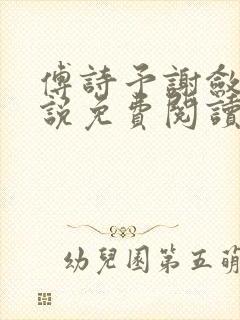 傅詩予謝斂
說免費閱讀
幼兒園第五萌